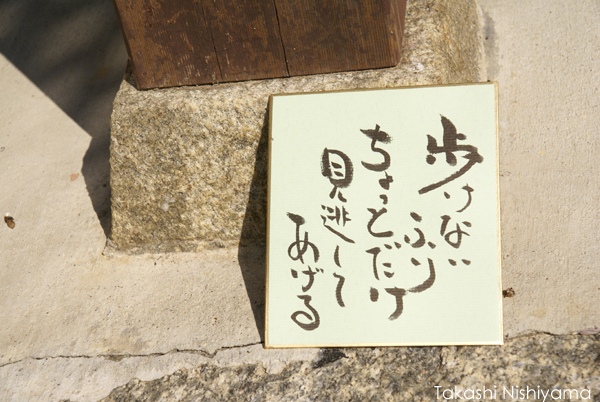 歩けない
ふり
ちょっとだけ
見逃して
あげる
Takashi Nishiyama